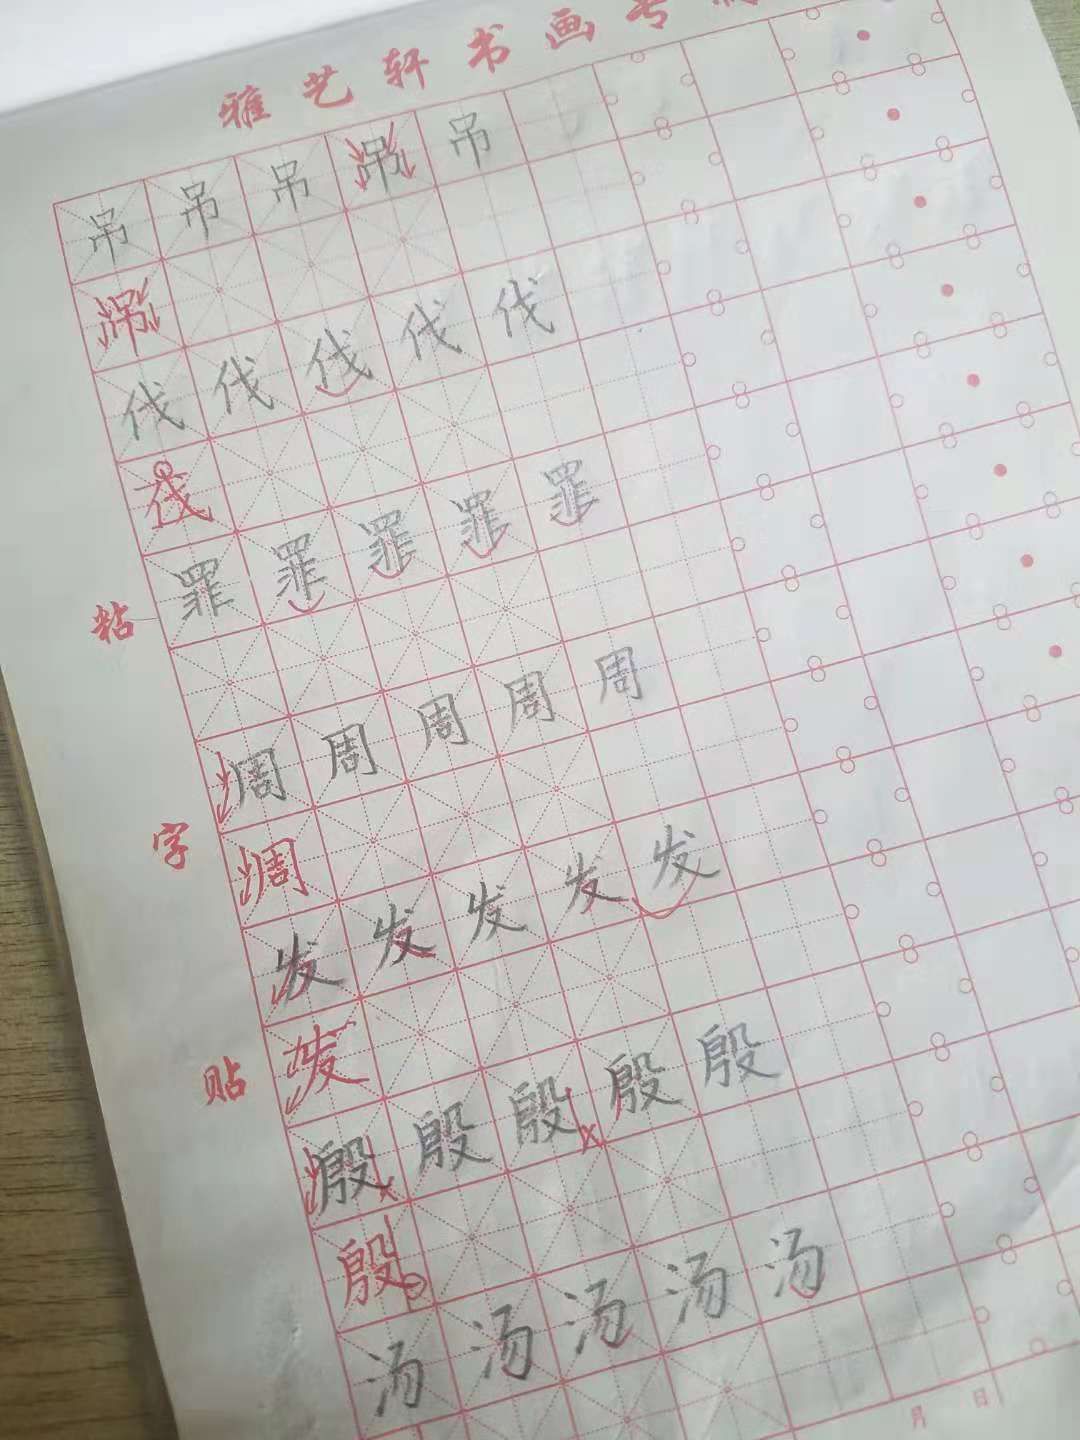 雅艺轩书画专
吊吊吊吊吊
吊
伐伐伐伐伐
伐
罪罪罪罪罪
粘
周周周周周
周
字
发发发发发
发
贴
殷殷殷殷殷
殷
汤汤汤汤汤
月 日